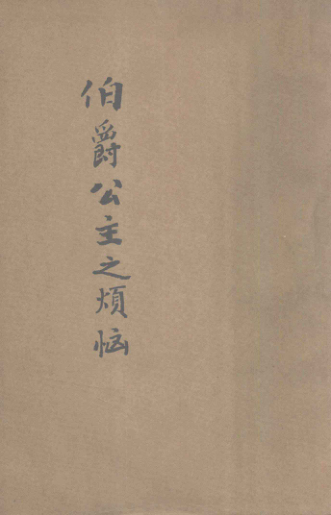 伯爵公主之煩恼